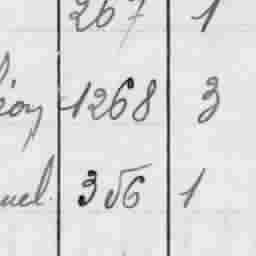 267 1
1268 3
uel. 356 1